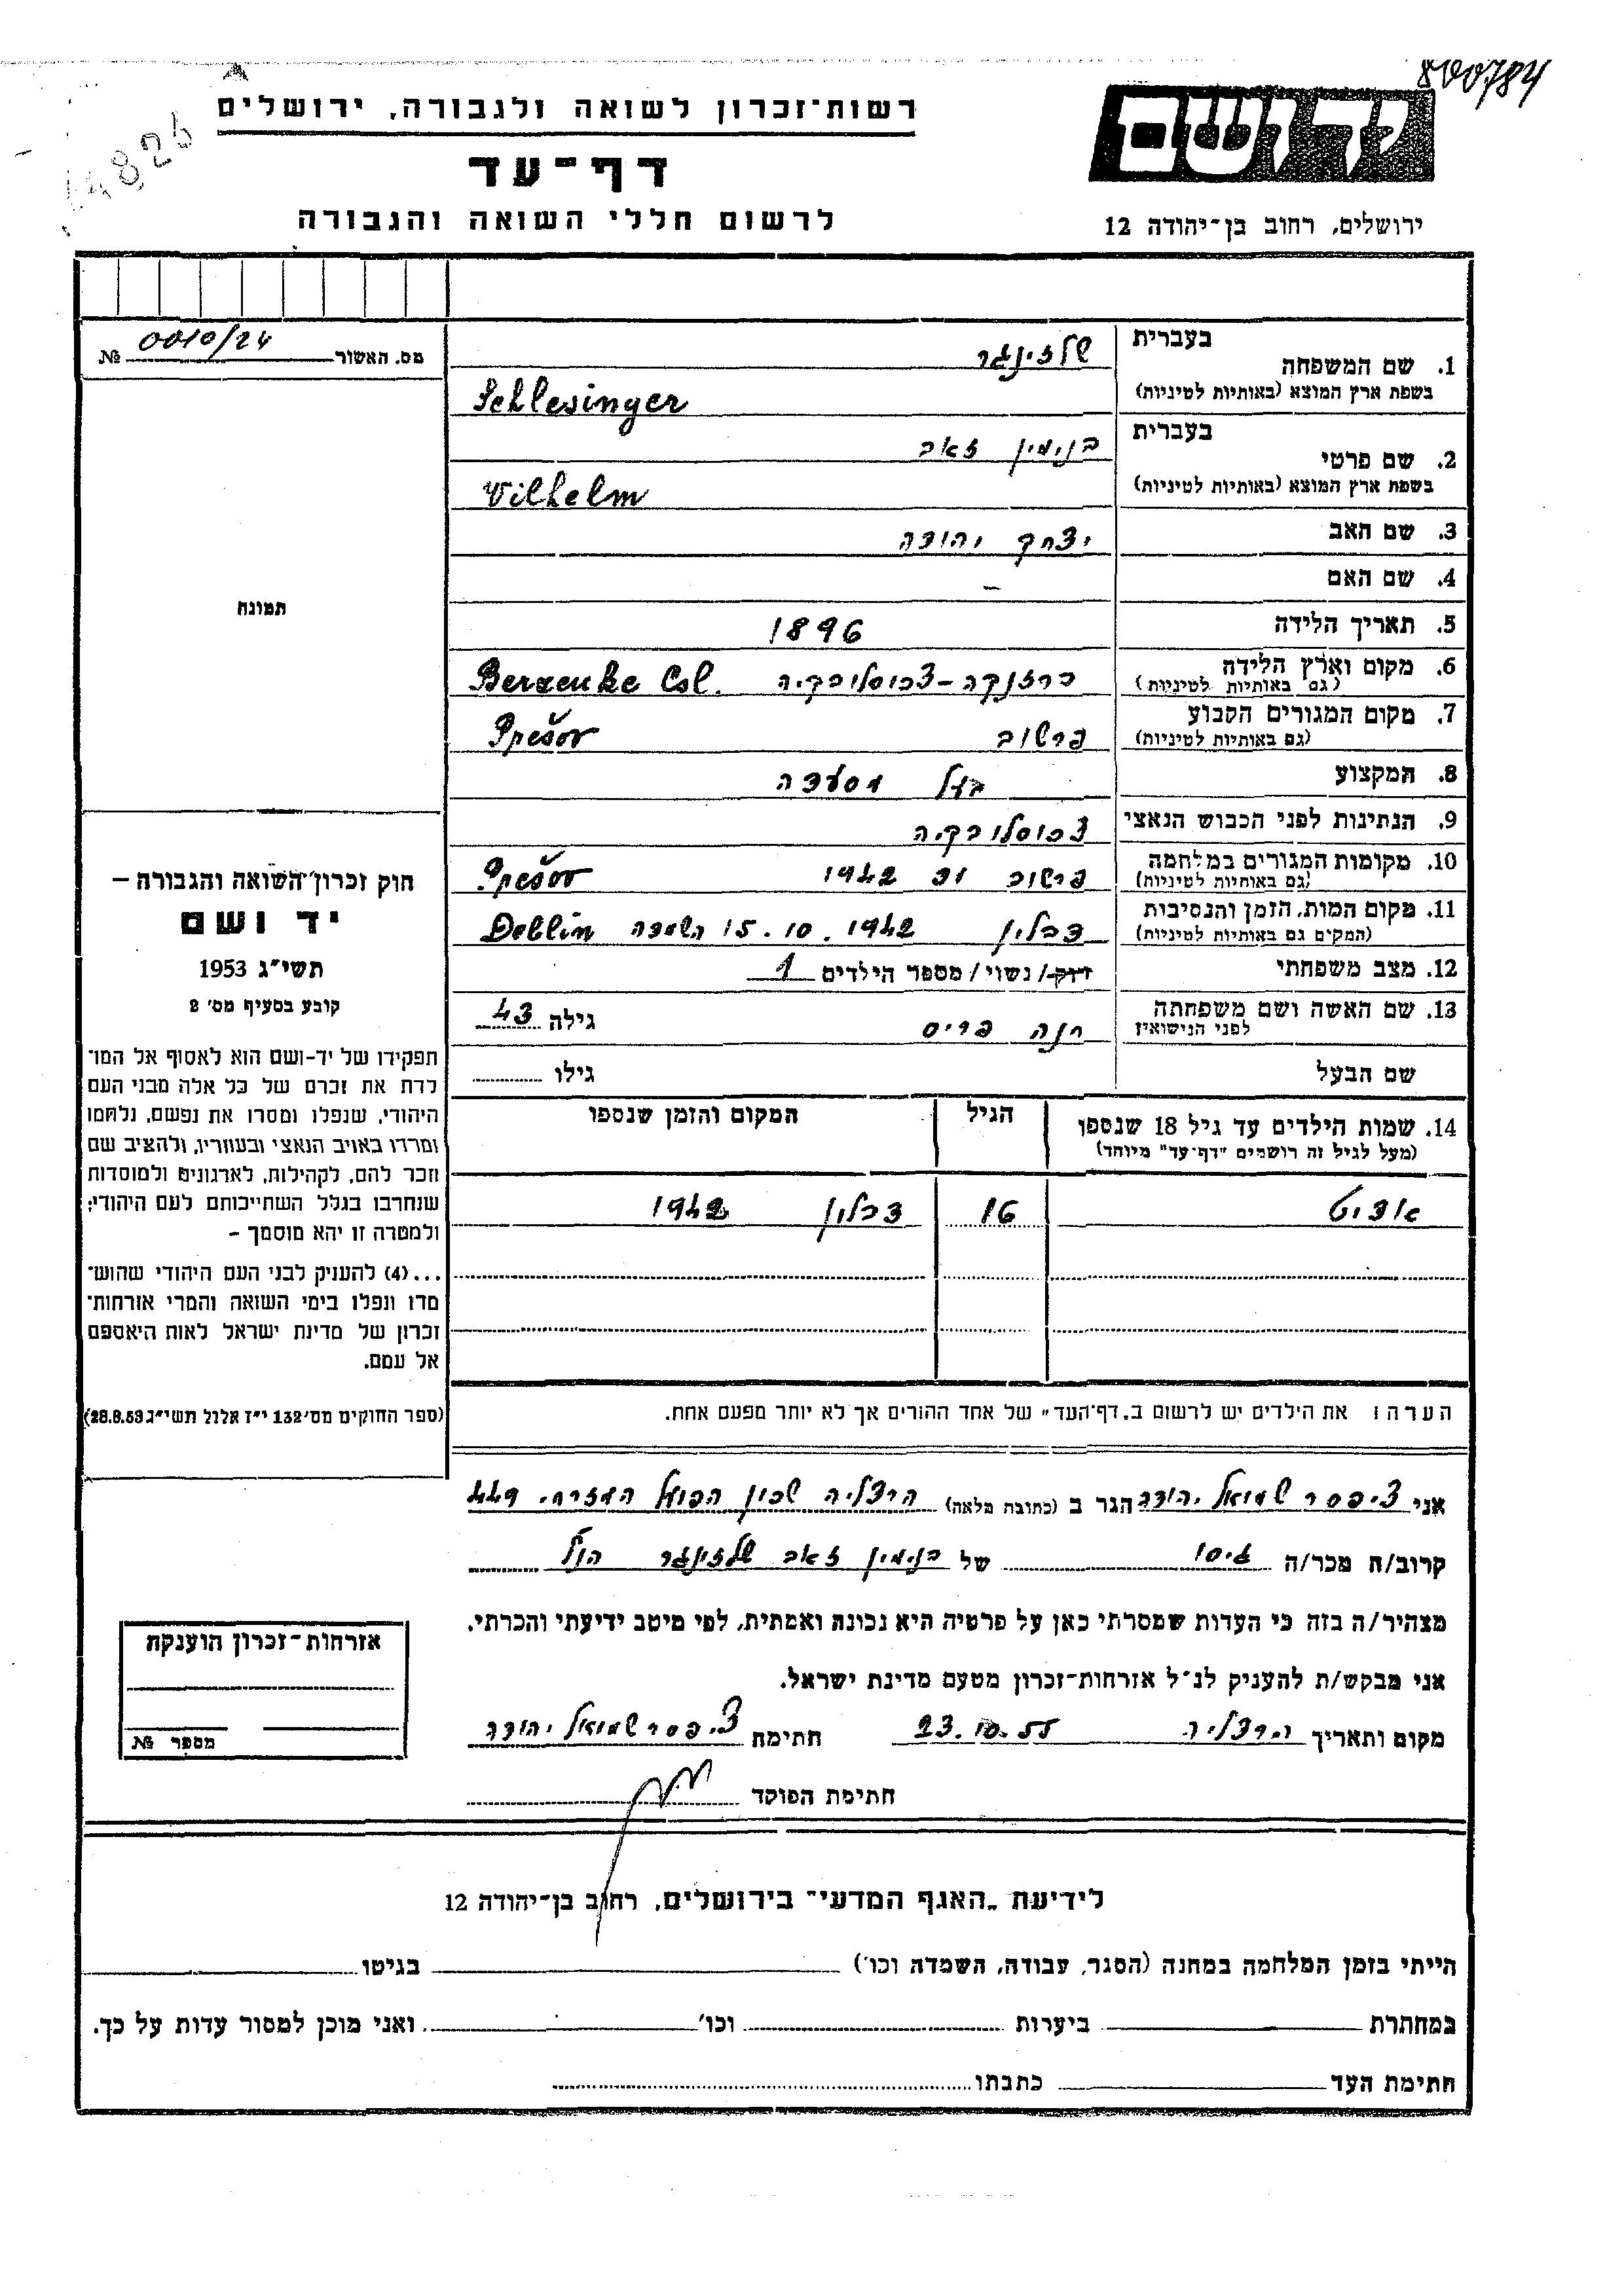 800784
רשות-זכרון לשואה ולגבורה, ירושלים
יד ושם
דף-עד
לרשום חללי השואה והגבורה
ירושלים, רחוב בן-יהודה 12
מס. האשור 0010/24 №
תמונה
בעברית
1. שם המשפחה שלזינגר
בשפת ארץ המוצא (באותיות לטיניות) Schlesinger
בעברית
2. שם פרטי בנימין זאב
בשפת ארץ המוצא (באותיות לטיניות) Wilhelm
3. שם האב יצחק יהודה
4. שם האם –
5. תאריך הלידה 1896
6. מקום וארץ הלידה ברזנקה-צכוסלובקיה Berzenke Csl.
(גם באותיות לטיניות)
7. מקום המגורים הקבוע פרשוב Prešov
(גם באותיות לטיניות)
8. המקצוע בעל מסעדה
9. הנתינות לפני הכבוש הנאצי צכוסלובקיה
10. מקומות המגורים במלחמה פרשוב עד 1942 Prešov
(גם באותיות לטיניות)
11. מקום המות, הזמן והנסיבות דבלין 15.10.1942 השמדה Deblin
(המקים גם באותיות לטיניות)
12. מצב משפחתי רווק/ נשוי/ מספר הילדים 1
13. שם האשה ושם משפחתה חנה פריס גילה 43
לפני הנישואין
שם הבעל גילו
14. שמות הילדים עד גיל 18 שנספו הגיל המקום והזמן שנספו
(מעל לגיל זה רושמים "דף-עד" מיוחד)
אודיט 16 דבלין 1942
הערה: את הילדים יש לרשום ב„דף-העד" של אחד ההורים אך לא יותר מפעם אחת.
חוק זכרון השואה והגבורה –
יד ושם
תשי"ג 1953
קובע בסעיף מס' 2
תפקידו של יד-ושם הוא לאסוף אל המו-
לדת את זכרם של כל אלה מבני העם
היהודי, שנפלו ומסרו את נפשם, נלחמו
ומרדו באויב הנאצי ובעוזריו, ולהציב שם
וזכר להם, לקהילות, לארגונים ולמוסדות
שנחרבו בגלל השתייכותם לעם היהודי;
ולמטרה זו יהא מוסמך –
...(4) להעניק לבני העם היהודי שהוש-
מדו ונפלו בימי השואה והמרי אזרחות-
זכרון של מדינת ישראל לאות היאספם
אל עמם.
(ספר החוקים מס' 132 י"ז אלול תשי"ג 28.8.53)
אני ציפסר שמואל יהודה הגר ב (כתובת מלאה) הרצליה שכון הפועל המזרחי 449
קרוב/ה מכר/ה גיסו של בנימין זאב שלזינגר הנ"ל
מצהיר/ה בזה כי העדות שמסרתי כאן על פרטיה היא נכונה ואמתית, לפי מיטב ידיעתי והכרתי.
אני מבקש/ת להעניק לנ"ל אזרחות-זכרון מטעם מדינת ישראל.
מקום ותאריך הרצליה 23.10.55 חתימת ציפסר שמואל יהודה
חתימת הפוקד
אזרחות-זכרון הוענקה
מספר №
לידיעת „האגף המדעי" בירושלים, רחוב בן-יהודה 12
הייתי בזמן המלחמה במחנה (הסגר, עבודה, השמדה וכו') בגיטו
במחתרת ביערות וכו' ואני מוכן למסור עדות על כך.
חתימת העד כתבתו